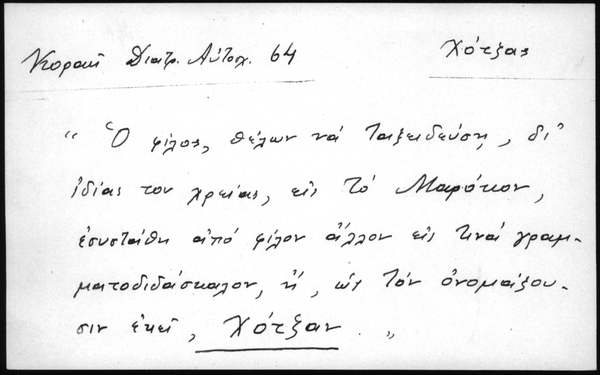 Κοραῆ Διατρ. Αὐτοσχ. 64
Χότζας
“ Ὁ φίλος, θέλων νά ταξειδεύσῃ, δι'
ἰδίας του χρείας, εἰς τό Μαρόκον,
ἐσυστάθη ἀπό φίλον ἄλλον εἰς τινά γραμ-
ματοδιδάσκαλον, ἤ, ὡς τόν ὀνομάζου-
σιν ἐκεῖ, Χότζαν. „